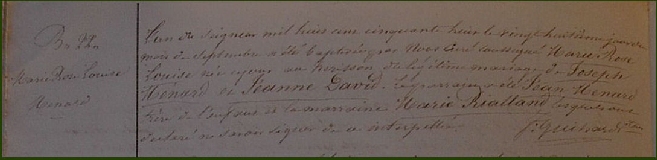 Bs 22e
Marie Rose Louise
Henard
L'an du seigneur mil huit cent cinquante huit le vingt huitième jour du
mois de septembre a été baptisée par Nous curé soussigné Marie Rose
Louise née au du légitime mariage de Joseph
Henard et Jeanne David. Le parrain a été Jean Henard
frère de l'enfant et la marraine Marie Rialland lesquels ont
déclaré ne savoir signer de ce interpellés